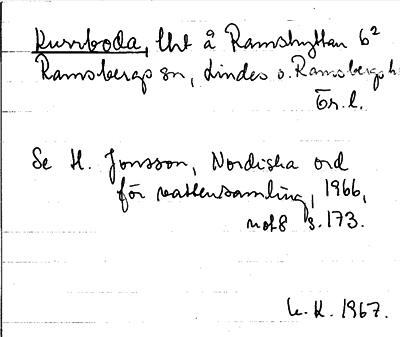 Kurrboda, lht å Ramshyttan 6²
Ramsbergs sn, Lindes o. Ramsbergs h.
Ör. l.
Se H. Jonsson, Nordiska ord
för vattensamling, 1966,
not 8 s. 173.
L. K. 1967.